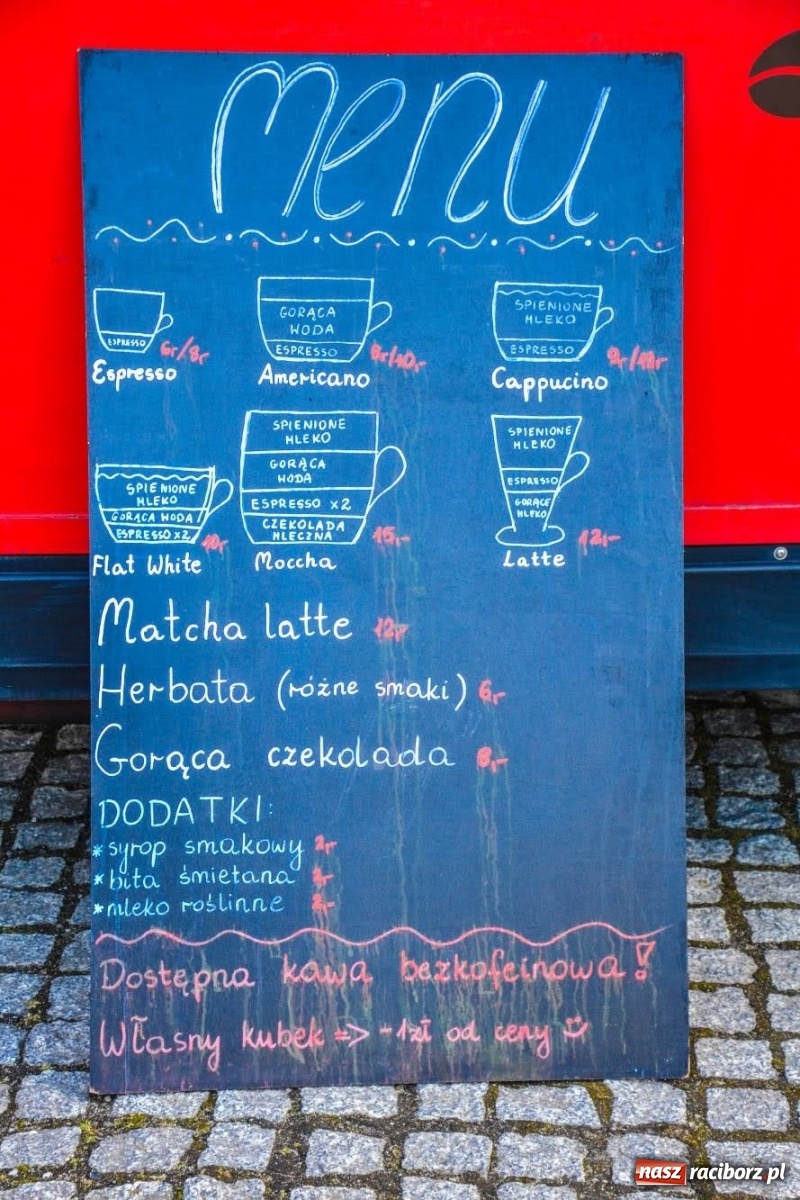 Menu
ESPRESSO
6,-/8,-
Espresso
GORĄCA
WODA
ESPRESSO
8,-/10,-
Americano
SPIENIONE
MLEKO
ESPRESSO
Cappucino
SPIENIONE
MLEKO
GORĄCA WODA
ESPRESSO x2
10,-
Flat White
SPIENIONE
MLEKO
GORĄCA
WODA
ESPRESSO x2
CZEKOLADA
MLECZNA
15,-
Moccha
SPIENIONE
MLEKO
ESPRESSO
GORĄCE
MLEKO
12,-
Latte
Matcha latte 12,-
Herbata (różne smaki) 6,-
Gorąca czekolada 8,-
DODATKI:
*syrop smakowy
*bita śmietana
*mleko roślinne 2,-
Dostępna kawa bezkofeinowa!
Własny kubek => -1zł od ceny
nasz raciborz.pl